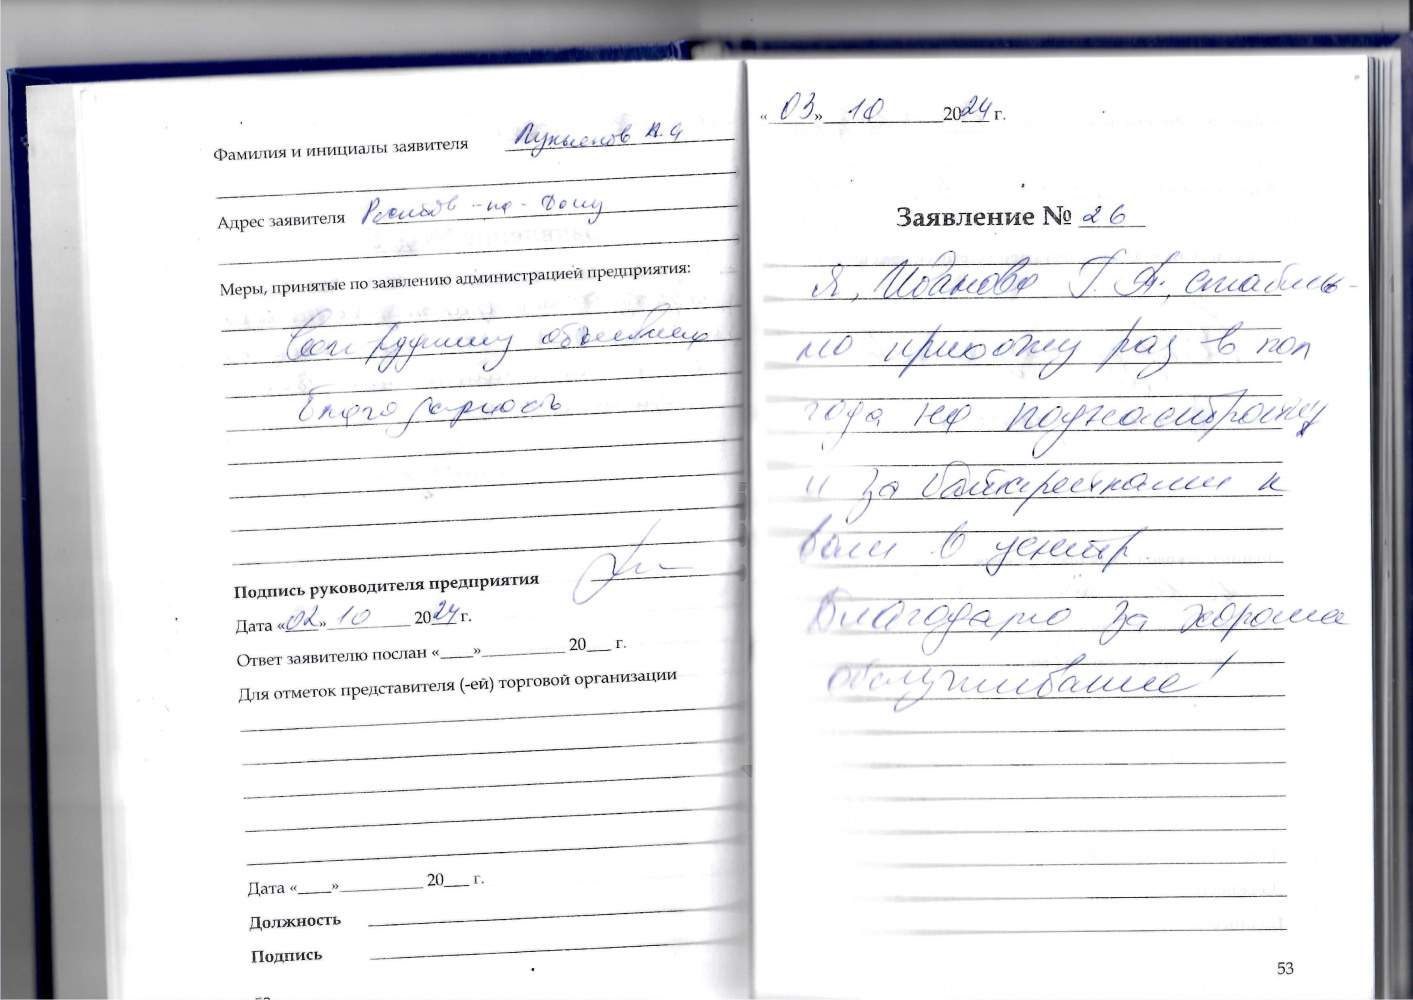 Фамилия и инициалы заявителя Лукьянов А.А
Адрес заявителя Ростов-на-Дону
Меры, принятые по заявлению администрацией предприятия:
объявлена
благодарность
Подпись руководителя предприятия
Дата «02» 10 2024 г.
Ответ заявителю послан «____»__________ 20___ г.
Для отметок представителя (-ей) торговой организации
Дата «____»__________ 20___ г.
Должность
Подпись
«03» 10 2024 г.
Заявление № 26
Я, Иванова Г. А, стабиль-
но прихожу раз в пол
года на поднастройку
и за батарейками к
вам в центр
Благодарю за хорошее
обслуживание!
53